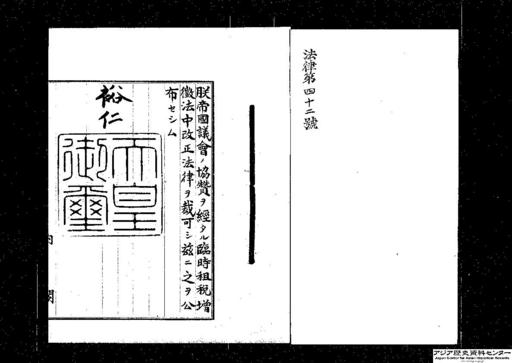 法律第四十二號
朕帝國議會ノ協賛ヲ經タル臨時租税增
徵法中改正法律ヲ裁可シ茲ニ之ヲ公
布セシム
裕仁
天皇
御璽
内
閣
アジア歴史資料センター
Japan Center for Asian Historical Records